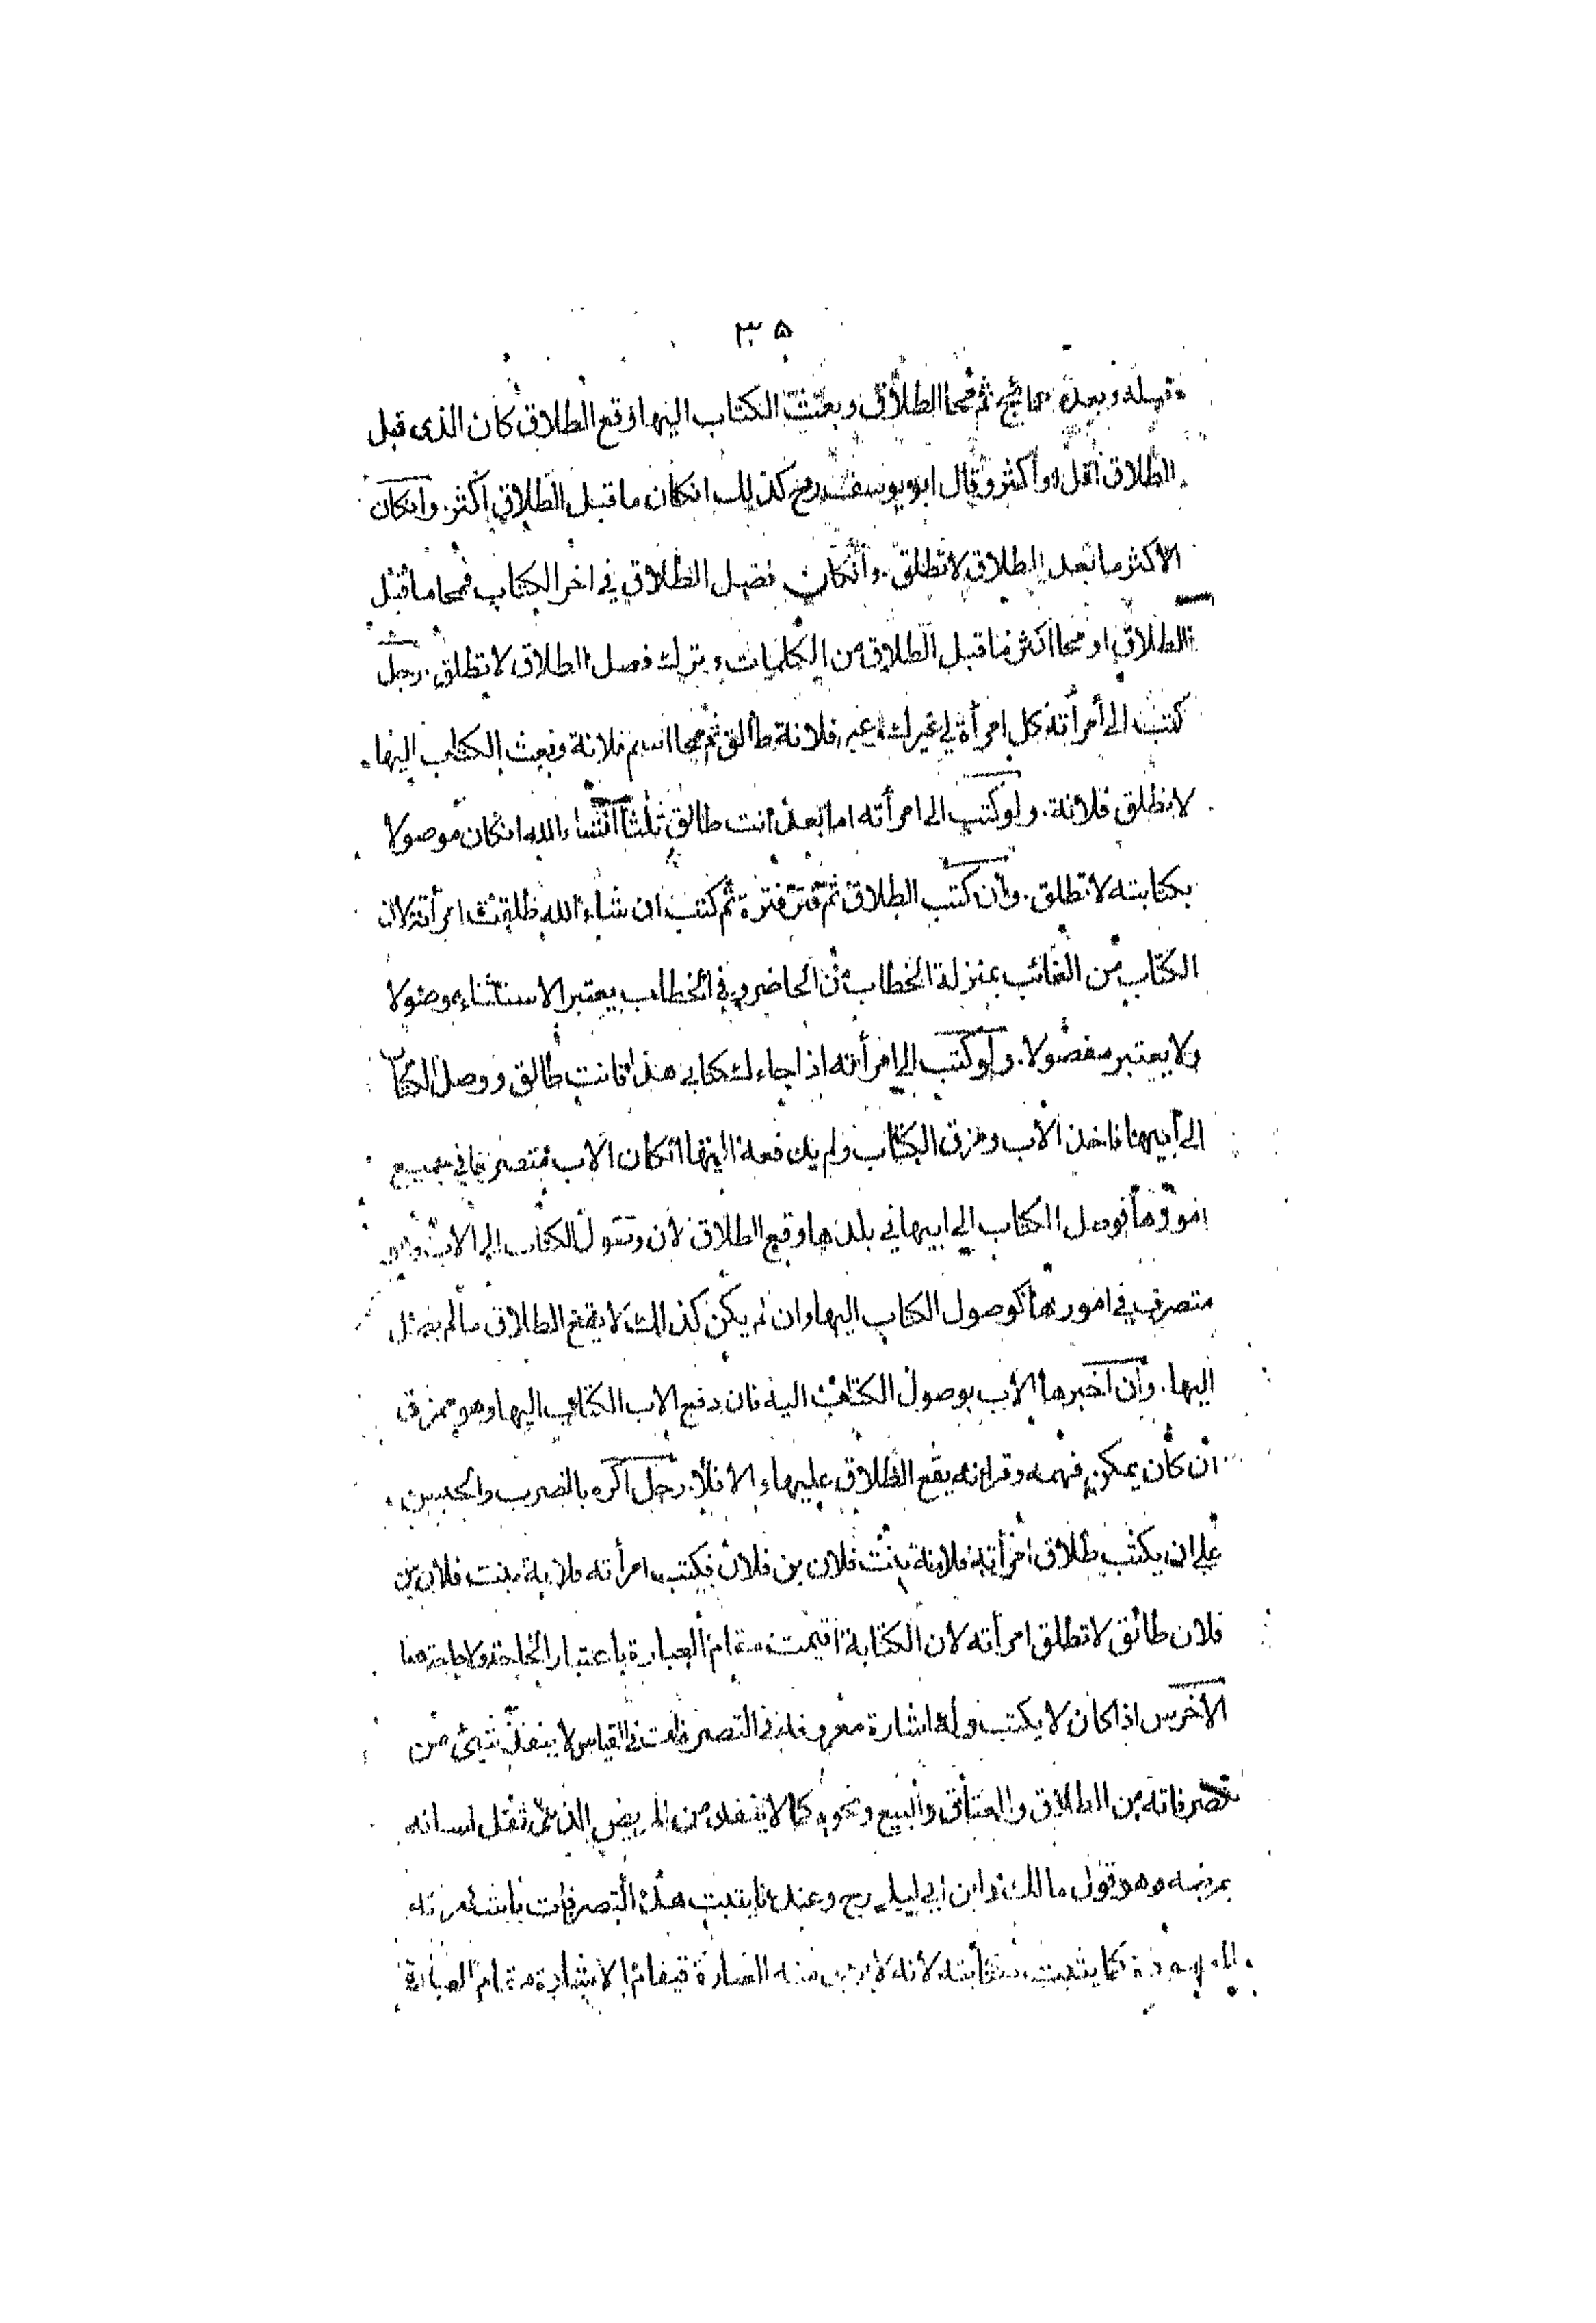 ٣٥
قبله وبعده حوائج ثم محا الطلاق وبعث الكتاب اليها وقع الطلاق كان الذى قبل
الطلاق اقل او اكثر وقال ابو يوسف رح كذلك انكان ما قبل الطلاق اكثر. وانكان
الاكثر ما بعد الطلاق لا تطلق. وانكان فصل الطلاق في اخر الكتاب فمحا ما قبل
الطلاق او محا اكثر ما قبل الطلاق من الكلمات وترك فصل الطلاق لا تطلق. رجل
كتب الى امرأته كل امرأة لي غيرك وغير فلانة طالق ثم محا اسم فلانة وبعث الكتاب اليها
لا تطلق فلانة. ولو كتب الى امرأته اما بعد انت طالق ثلثا انشاء الله انكان موصولا
بكتابته لا تطلق. وان كتب الطلاق ثم فتر فترة ثم كتب ان شاء الله طلقت امرأته لان
الكتاب من الغائب بمنزلة الخطاب من الحاضر وفي الخطاب يعتبر الاستثناء موصولا
ولا يعتبر مفصولا. ولو كتب الى امرأته اذا جاءك كتابي هذا فانت طالق ووصل الكتاب
الى ابيها فاخذ الاب ومزق الكتاب ولم يدفعه اليها انكان الاب متصرفا في جميع
امورها فوصل الكتاب الى ابيها في بلدها وقع الطلاق لان وصول الكتاب الى الاب وهو
متصرف في امورها كوصول الكتاب اليها وان لم يكن كذلك لا يقع الطلاق ما لم يصل
اليها. وان اخبرها الاب بوصول الكتاب اليه فان دفع الاب الكتاب اليها وهو ممزق
ان كان يمكن فهمه وقراءته يقع الطلاق عليها والا فلا. رجل اكره بالضرب والحبس
على ان يكتب طلاق امرأته فلانة بنت فلان بن فلان فكتب امرأته فلانة بنت فلان بن
فلان طالق لا تطلق امرأته لان الكتابة اقيمت مقام العبارة باعتبار الحاجة ولا حاجة هنا
الاخرس اذا كان لا يكتب وله اشارة معروفة في التصرفات في القياس لا ينفذ شيئ من
تصرفاته من الطلاق والعتاق والبيع ونحوه كما لا ينفذ من المريض الذى ثقل لسانه
بمرضه وهو قول مالك وابن ابي ليلى رح وعندنا يثبت هذه التصرفات باشارته
المعهودة كما يثبت بكتابته لانه لا يرجى منه العبارة فيقام الاشارة مقام العبارة